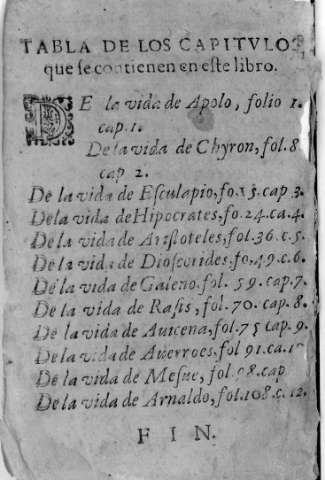 TABLA DE LOS CAPITVLOS
que ſe contienen en eſte libro.
DE la vida de Apolo, folio 1.
cap. 1.
De la vida de Chyron, fol. 8
cap 2.
De la vida de Eſculapio, fo. 15. cap 3.
De la vida de Hipocrates, fo. 24. ca. 4.
De la vida de Ariſtoteles, fol. 36. c. 5.
De la vida de Dioſcorides. fo. 49. c. 6.
De la vida de Galeno. fol. 59. cap. 7.
De la vida de Raſis, fol. 70. cap. 8.
De la vida de Auicena, fol. 75 cap. 9.
De la vida de Auerroes, fol 91. ca.
De la vida de Meſue, fol. cap
De la vida de Arnaldo, fol. 108. c. 12.
FIN.